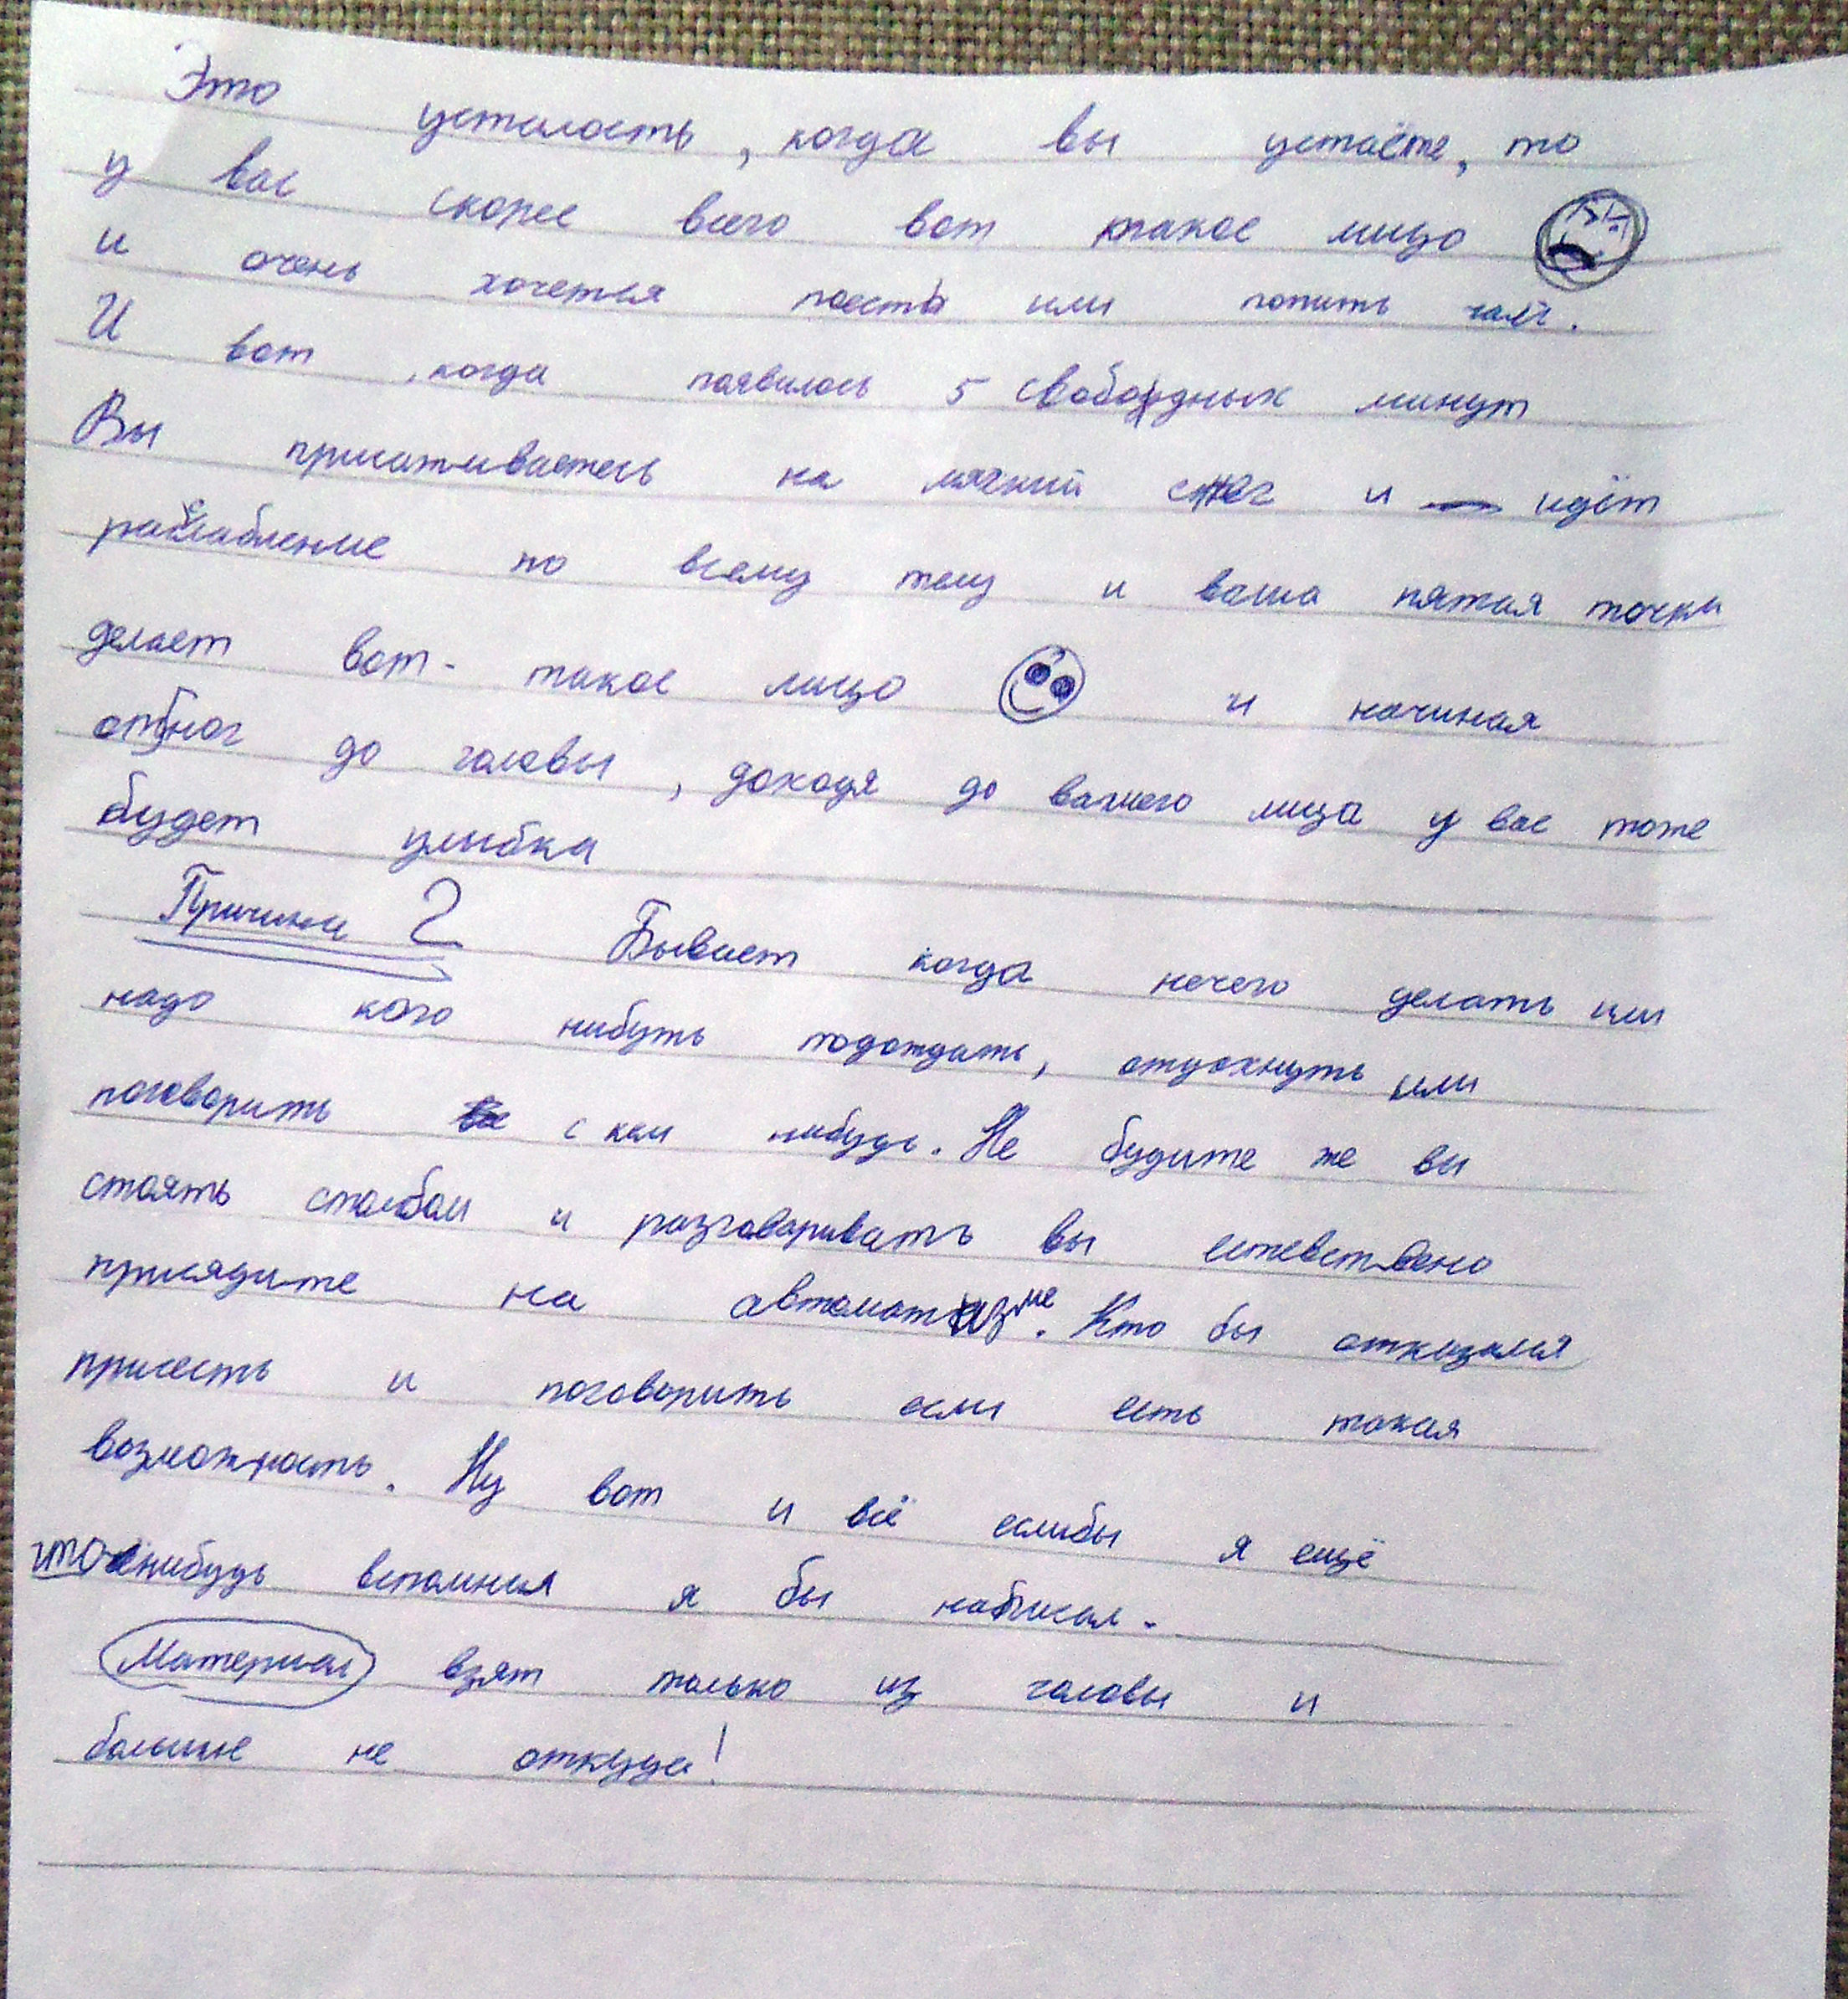 Это усталость, когда вы устаёте, то
у вас скорее всего вот такое лицо
и очень хочется поесть или попить чай.
И вот, когда появилось 5 свободных минут
Вы присаживаетесь на мягкий снег и идёт
расслабление по всему телу и ваша пятая точка
делает вот-такое лицо и начиная
от ног до головы, доходя до вашего лица у вас тоже
будет улыбка
Причина 2 Бывает когда нечего делать или
надо кого нибуть подождать, отдохнуть или
поговорить с кем нибудь. Не будите же вы
стоять столбом и разговаривать вы естевствено
присядите на автоматизме. Кто бы отказался
присесть и поговорить если есть такая
возможность. Ну вот и всё еслибы я ещё
что нибудь вспомнил я бы написал.
Материал взят только из головы и
больше не откуда!